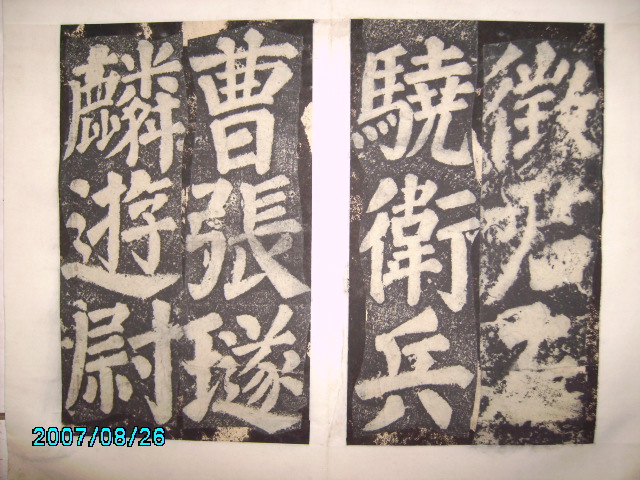 徵君左
驍衛兵
曹張璲
麟遊尉
2007/08/26